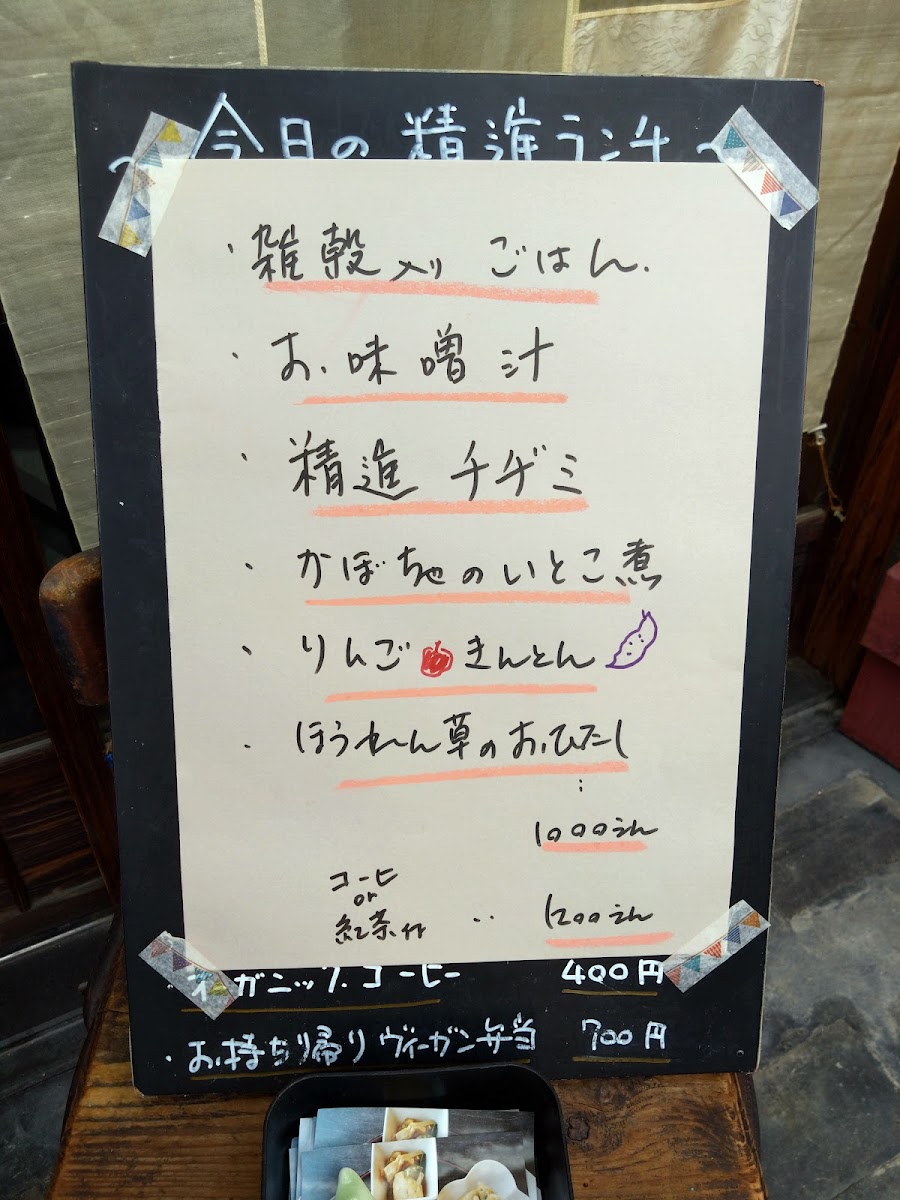 ~今日の精進ランチ~
・雑穀入りごはん.
・お味噌汁
・精進チヂミ
・かぼちゃのいとこ煮
・りんごきんとん
・ほうれん草のおひたし
1000えん
コーヒ
or
紅茶付 ‥ 1200えん
・オーガニックコーヒー 400円
・お持ち帰りヴィーガン弁当 700円